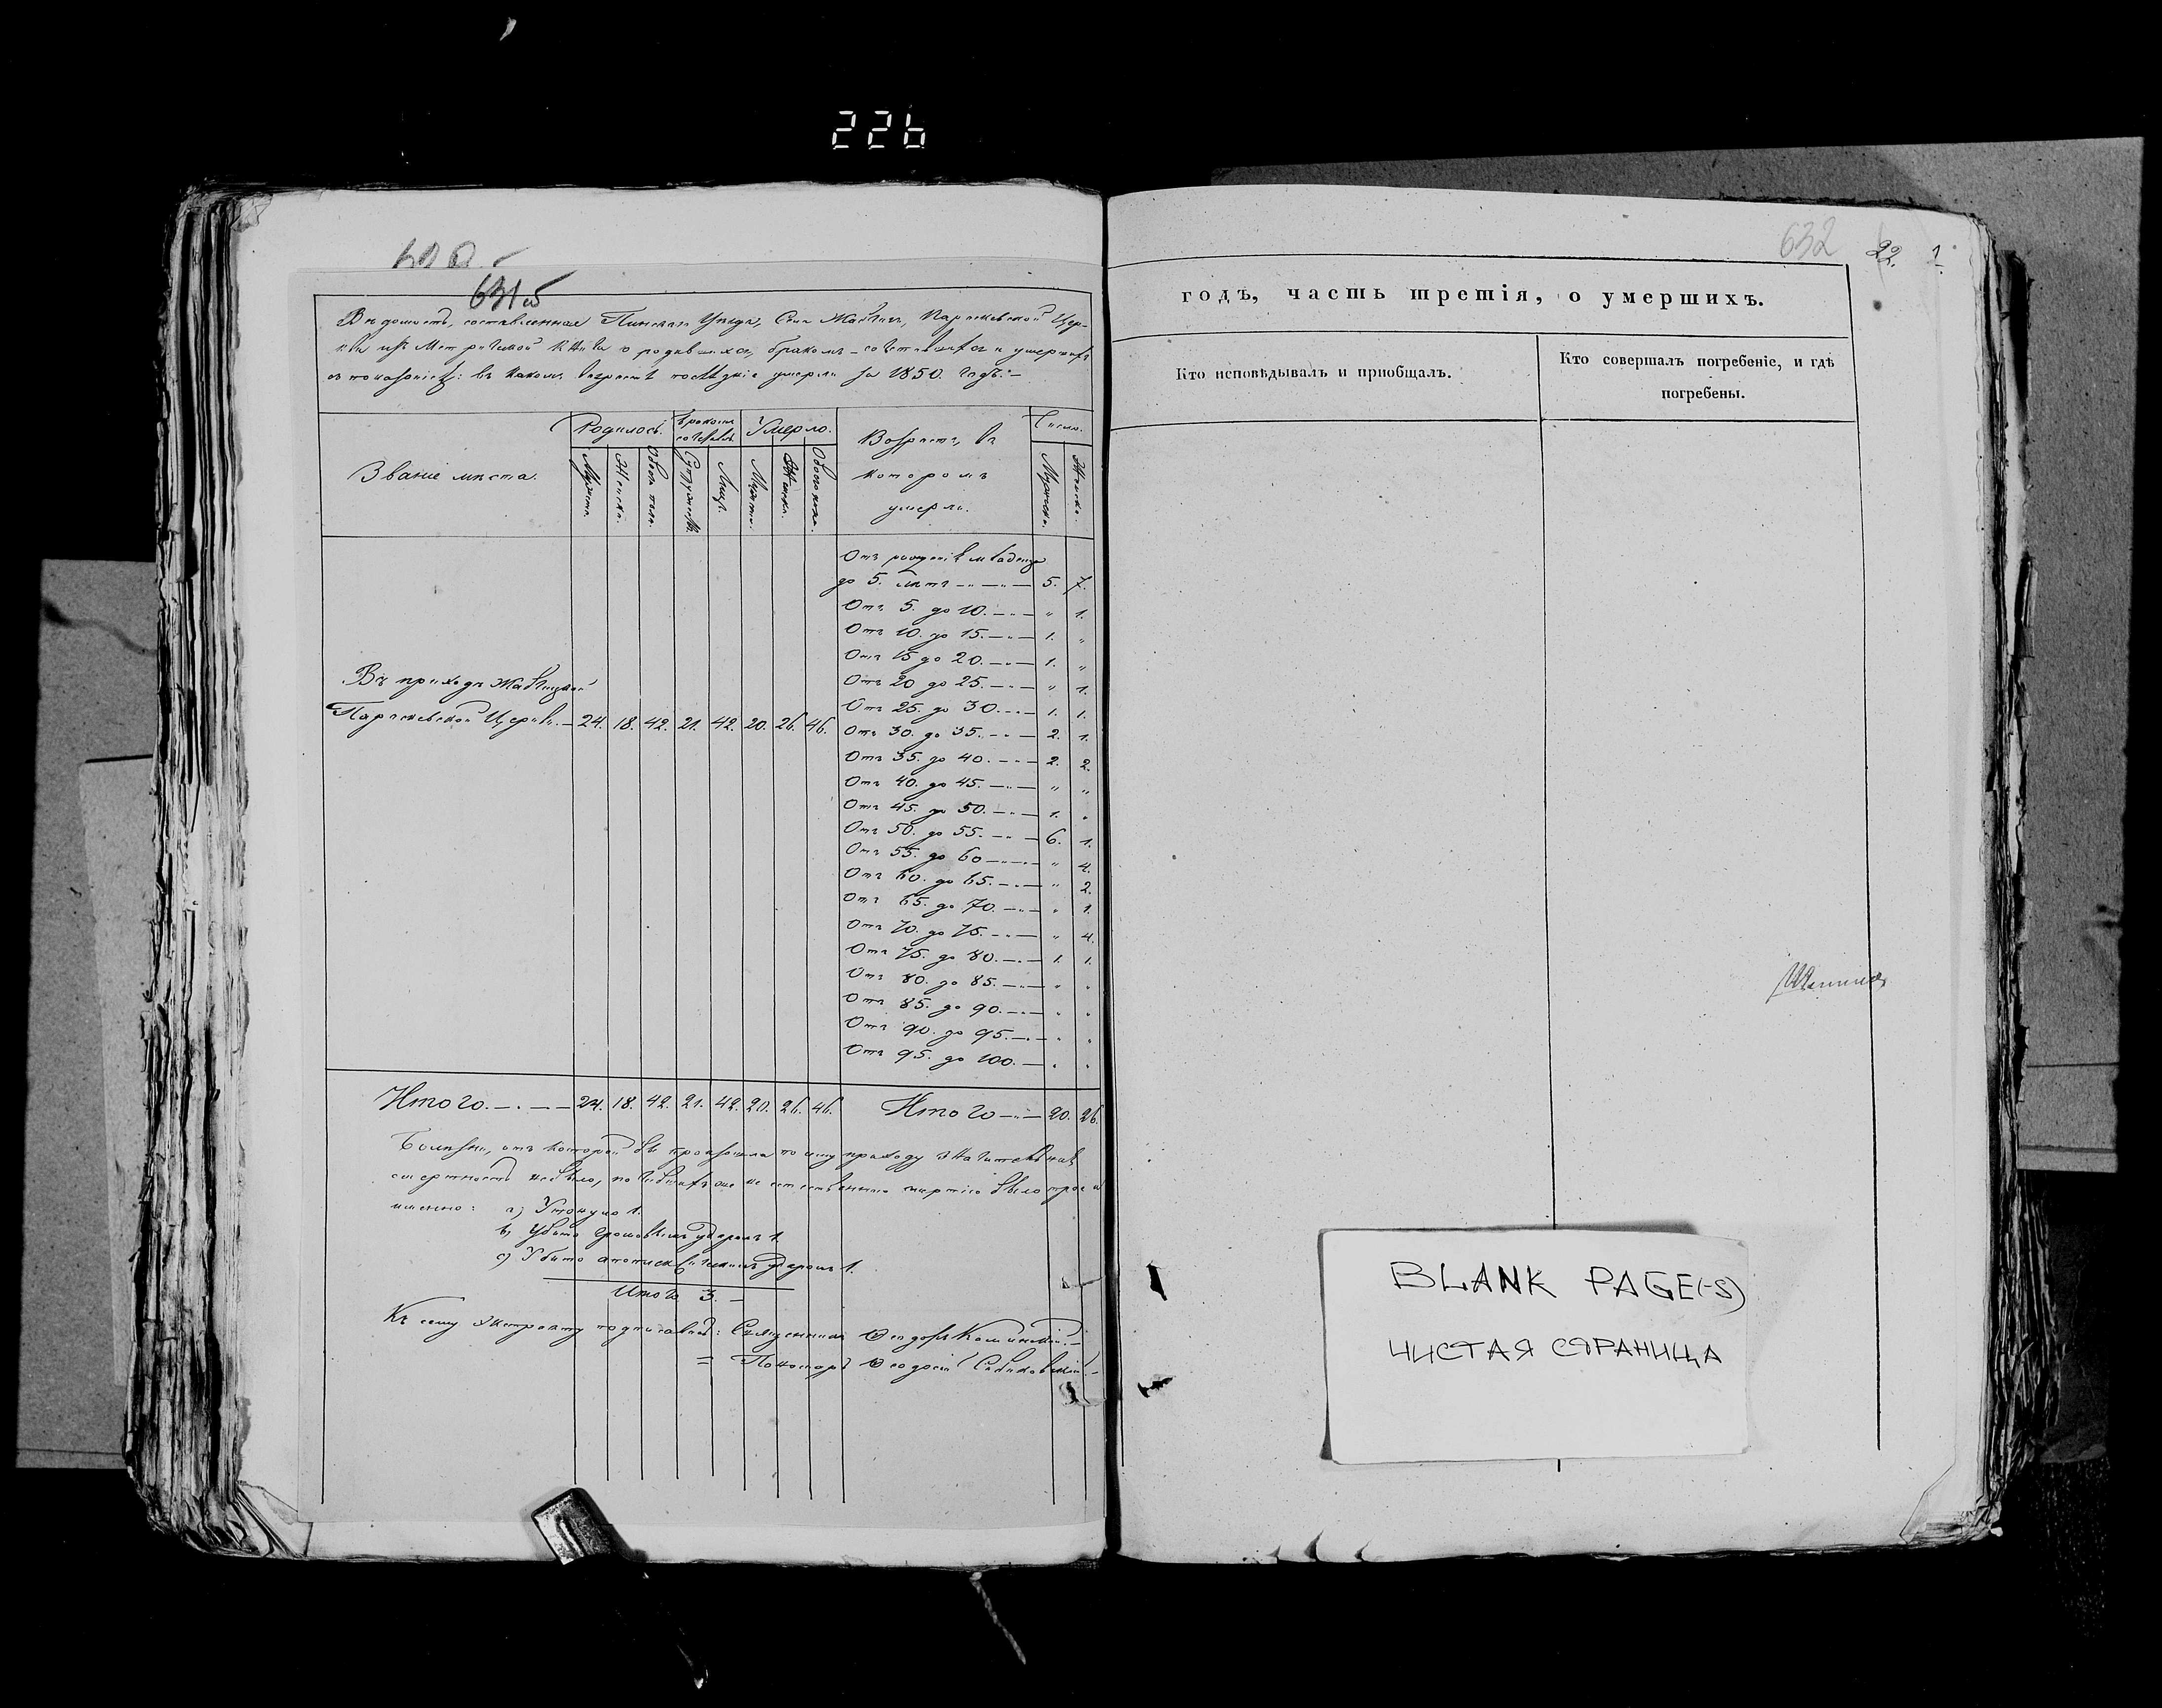 226
631 об
Вѣдомость, составленная Пинскаго Уѣзда, Села Жабчичъ, Параскевской Цер-
кви изъ Метрической книги о родившихся, бракомъ-сочетавшихся и умершихъ
съ показаніемъ: въ какомъ возрастѣ послѣдніе умерли за 1850. годъ.-
Званіе мѣста. Родилось. Бракомъ сочеталось Умерло. Возрастъ, въ которомъ умерли. Число.
Мужеск. Женска. Обоего пола. Супружествъ. Лицъ. Мужеск. Женска. Обоего пола. Мужеска. Женска.
Отъ рожденія младенца
до 5. лѣтъ 5. 7.
Отъ 5. до 10. " 1.
Отъ 10. до 15. 1. "
Отъ 15 до 20. 1. "
Отъ 20 до 25. " 1.
Отъ 25. до 30. 1. 1.
Въ приходѣ Жабчицкой
Параскевской Церкви. 24. 18. 42. 21. 42. 20. 26. 46.
Отъ 30. до 35. 2. 1.
Отъ 35. до 40. 2. 2.
Отъ 40. до 45. " "
Отъ 45. до 50. 1. "
Отъ 50. до 55. 6. 1.
Отъ 55. до 60 " 4.
Отъ 60. до 65. " 2.
Отъ 65. до 70. " 1.
Отъ 70. до 75. " 4.
Отъ 75. до 80. 1. 1.
Отъ 80. до 85. " "
Отъ 85. до 90. " "
Отъ 90. до 95. " "
Отъ 95. до 100. " "
Итого. 24. 18. 42. 21. 42. 20. 26. 46. Итого 20. 26.
Болѣзни, отъ которой бы произошла по сему приходу значительная
смертность не было, погибшихъ же не естественною смертію было трое и
именно: а) Утонуло 1.
в) Убито громовымъ ударомъ 1.
с) Убито апоплексическимъ ударомъ 1.
Итого 3.
Къ сему экстракту подписались: Священникъ Ѳеодоръ
= Пономарь Ѳеодосій
632 22. 1.
годъ, часть третія, о умершихъ.
Кто исповѣдывалъ и пріобщалъ.
Кто совершалъ погребеніе, и гдѣ
погребены.
BLANK PAGE(-S)
ЧИСТАЯ СТРАНИЦА